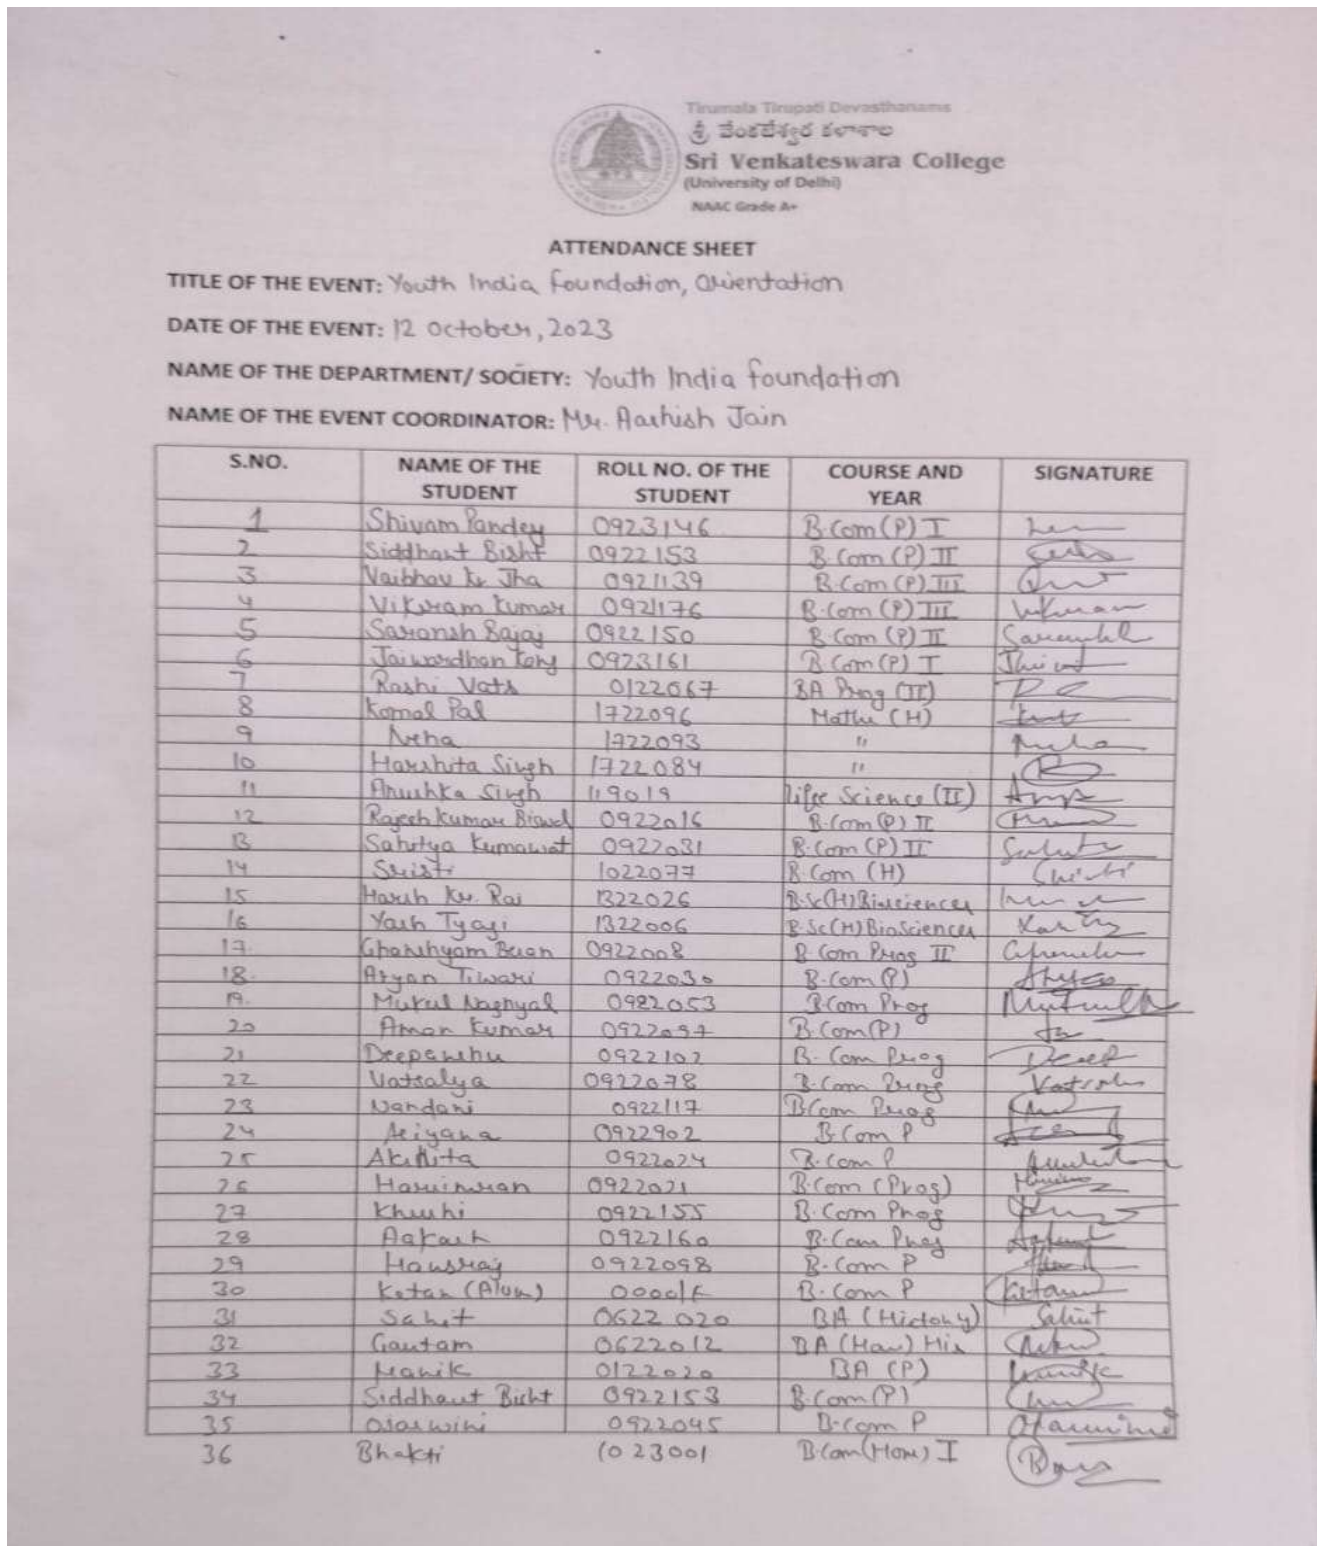 Tirumala Tirupati Devasthanams
శ్రీ వేంకటేశ్వర కళాశాల
Sri Venkateswara College
(University of Delhi)
NAAC Grade A+
ATTENDANCE SHEET
TITLE OF THE EVENT: Youth India foundation, Orientation
DATE OF THE EVENT: 12 October, 2023
NAME OF THE DEPARTMENT/ SOCIETY: Youth India foundation
NAME OF THE EVENT COORDINATOR: Mr. Aashish Jain
S.NO. NAME OF THE STUDENT ROLL NO. OF THE STUDENT COURSE AND YEAR SIGNATURE
1 Shivam Pandey 0923146 B.Com(P) I
2 Siddhant Bisht 0922153 B.Com(P) II
3 Vaibhav Kr Jha 0921139 B.Com(P) III
4 Vikram Kumar 0921176 B.Com(P) III Vikram
5 Saransh Bajaj 0922150 B.Com(P) II
6 Jaiwardhan 0923161 B.Com(P) I
7 Rashi Vats 0122067 BA Prog (II)
8 Komal Pal 1722096 Maths (H)
9 Neha 1722093 " Neha
10 Harshita Singh 1722084 "
11 Anushka Singh 119019 Life Science (II)
12 Rajesh Kumar 0922016 B.Com(P) II
13 Sahitya Kumawat 0922031 B.Com(P) II
14 Sristi 1022077 B.Com (H)
15 Harsh Kr. Rai 1322026 B.Sc(H) Biosciences
16 Yash Tyagi 1322006 B.Sc(H) BioSciences
17. Ghanshyam 0922008 B.Com Prog II
18. Aryan Tiwari 0922030 B.Com(P)
19. Mukul Nagnyal 0922053 B.Com Prog
20 Aman Kumar 0922097 B.Com(P)
21 Deepanshu 0922102 B.Com Prog
22 Vatsalya 0922078 B.Com Prog
23 Nandani 0922117 BCom Prog
24 0922902 B.Com P
25 Akshita 0922024 B.Com P
26 0922021 B.Com (Prog)
27 Khushi 0922155 B.Com Prog
28 Aakash 0922160 B.Com Prog
29 Hansraj 0922098 B.Com P
30 Ketan (Alum) B.Com P Ketan
31 Sahit 0622 020 BA (History) Sahit
32 Gautam 0622012 BA (Hon) His
33 Manik 0122020 BA (P)
34 Siddhant Bisht 0922153 B.Com(P)
35 Ojaswini 0922045 B.Com P
36 Bhakti 1023001 B.Com(Hons) I